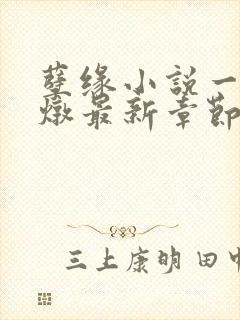 孽缘小说一
燉最新章節
三上康明田中